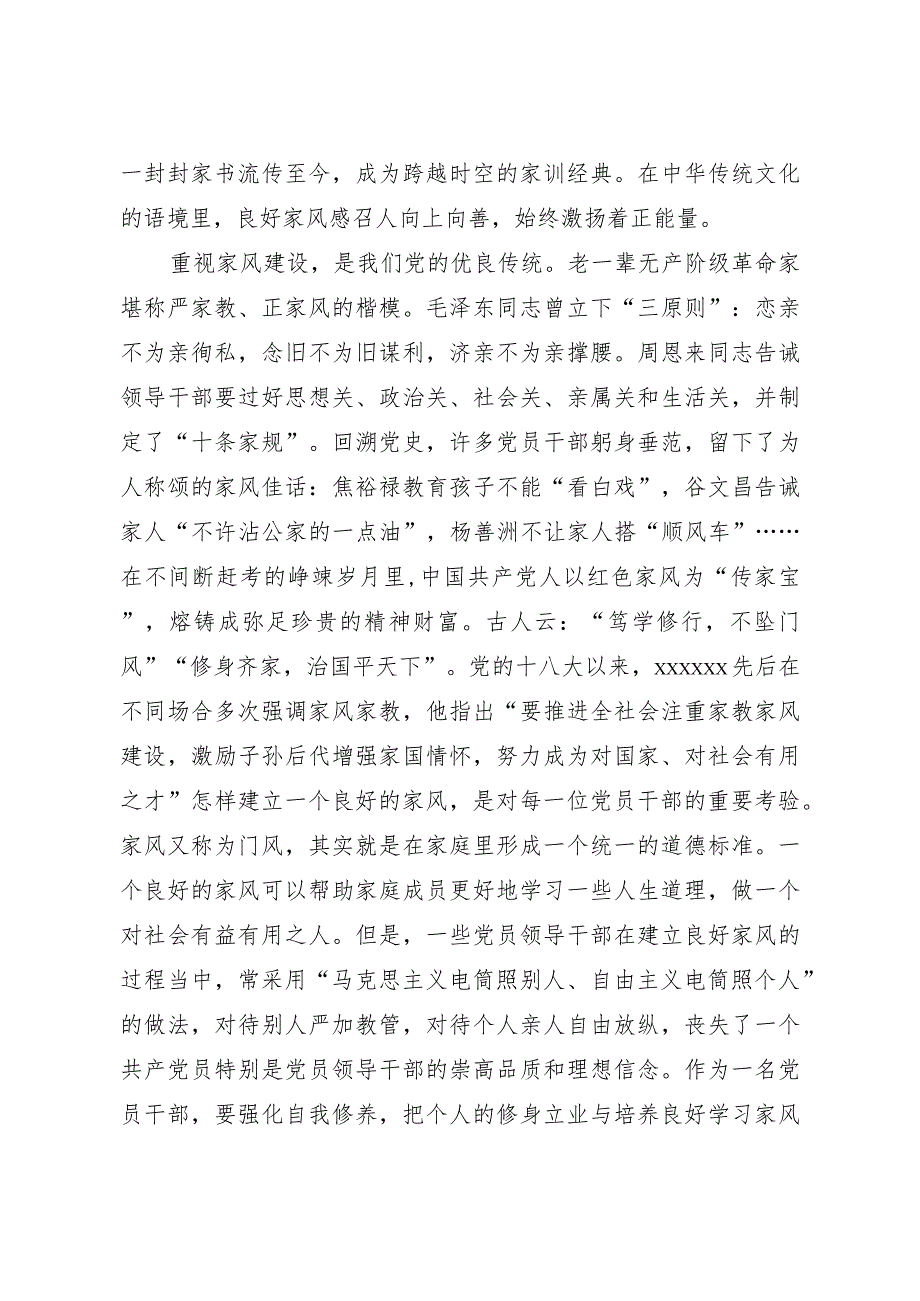 一封封家书流传至今，成为跨越时空的家训经典。在中华传统文化
的语境里，良好家风感召人向上向善，始终激扬着正能量。
重视家风建设，是我们党的优良传统。老一辈无产阶级革命家
堪称严家教、正家风的楷模。毛泽东同志曾立下“三原则”：恋亲
不为亲徇私，念旧不为旧谋利，济亲不为亲撑腰。周恩来同志告诫
领导干部要过好思想关、政治关、社会关、亲属关和生活关，并制
定了“十条家规”。回溯党史，许多党员干部躬身垂范，留下了为
人称颂的家风佳话：焦裕禄教育孩子不能“看白戏”，谷文昌告诫
家人“不许沾公家的一点油”，杨善洲不让家人搭“顺风车”……
在不间断赶考的峥竦岁月里,中国共产党人以红色家风为“传家宝
”，熔铸成弥足珍贵的精神财富。古人云：“笃学修行，不坠门
风”“修身齐家，治国平天下”。党的十八大以来，xxxxxx先后在
不同场合多次强调家风家教，他指出“要推进全社会注重家教家风
建设，激励子孙后代增强家国情怀，努力成为对国家、对社会有用
之才”怎样建立一个良好的家风，是对每一位党员干部的重要考验。
家风又称为门风，其实就是在家庭里形成一个统一的道德标准。一
个良好的家风可以帮助家庭成员更好地学习一些人生道理，做一个
对社会有益有用之人。但是，一些党员领导干部在建立良好家风的
过程当中，常采用“马克思主义电筒照别人、自由主义电筒照个人”
的做法，对待别人严加教管，对待个人亲人自由放纵，丧失了一个
共产党员特别是党员领导干部的崇高品质和理想信念。作为一名党
员干部，要强化自我修养，把个人的修身立业与培养良好学习家风